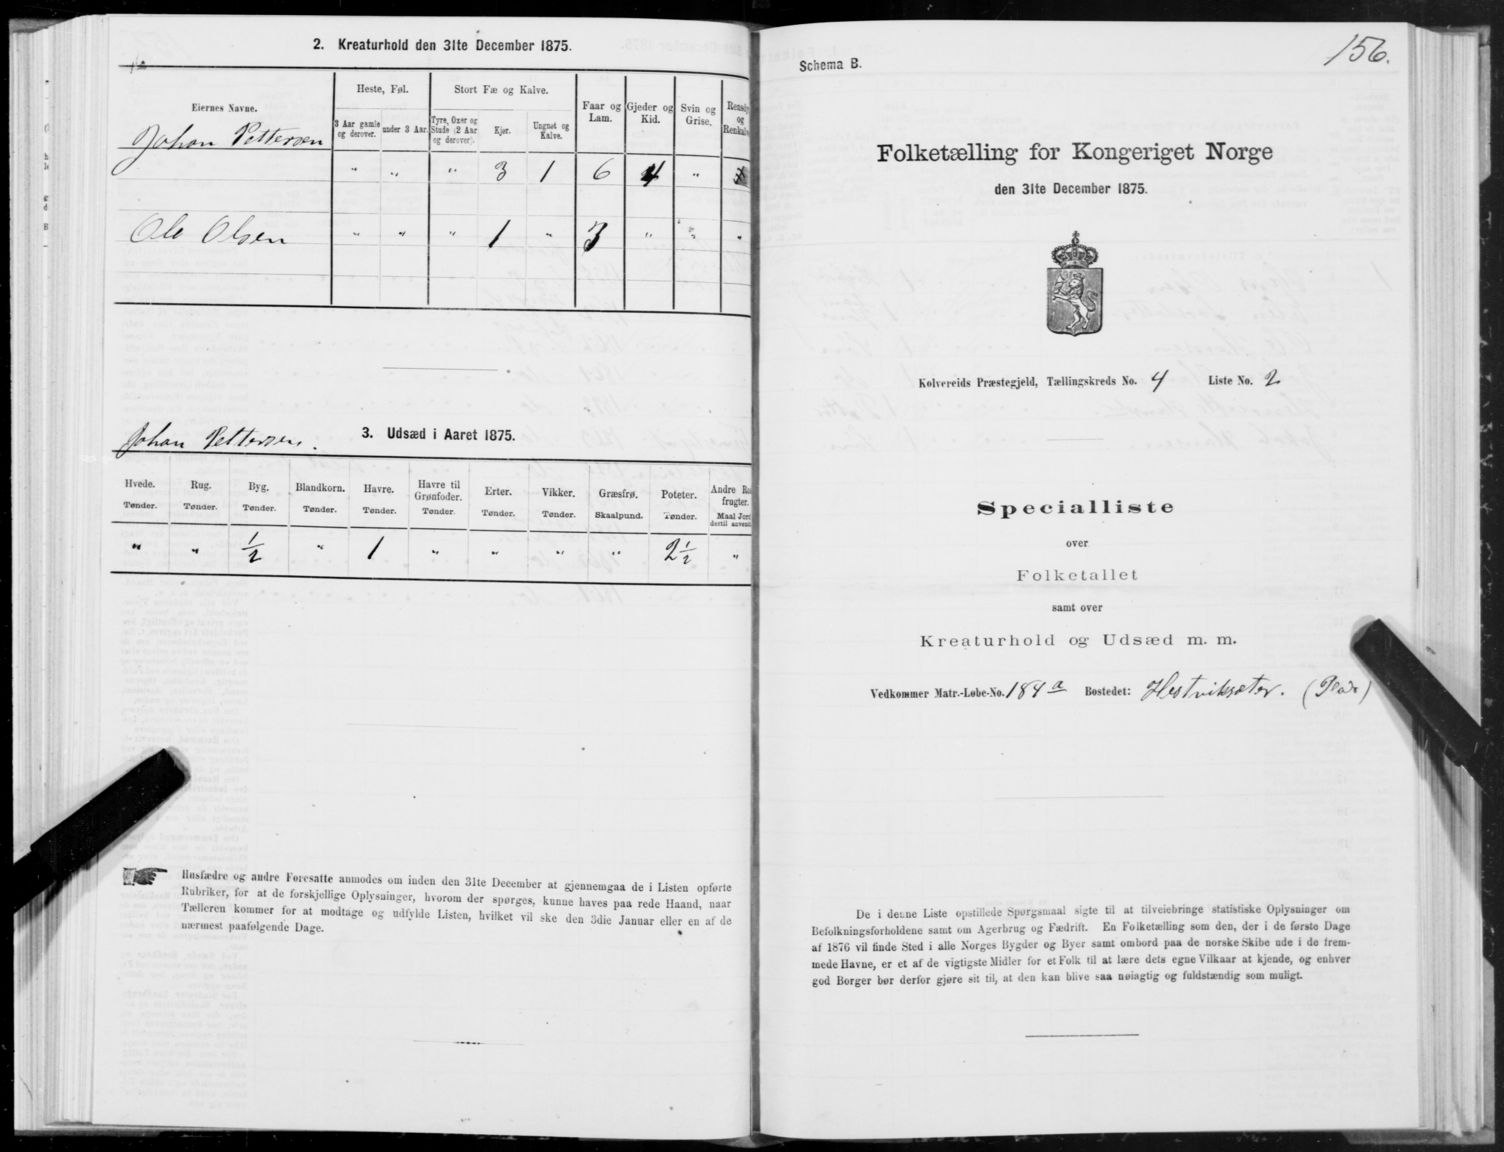 2. Kreaturhold den 31te December 1875.
Eiernes Navne.
Heste, Føl.
Stort Fæ og Kalve.
Faar og Lam.
Gjeder og Kid.
Svin og Grise.
Rensdyr og Renkalve
3 Aar gamle og derover.
under 3 Aar.
Tyre, Oxer og Stude (2 Aar og derover).
Kjør.
Ungnøt og Kalve.
Johan Pettersen
" " " 3 1 6 4 "
Ole Olsen
" " " 1 " 3 " " "
Johan Pettersen. 3. Udsæd i Aaret 1875.
Hvede. Rug. Byg. Blandkorn. Havre. Havre til Grønfoder. Erter. Vikker. Græsfrø. Poteter. Andre Ro frugter.
Tønder. Tønder. Tønder. Tønder. Tønder. Tønder. Tønder. Tønder. Skaalpund. Tønder. Maal Jord dertil anvend
" " 1/2 " 1 " " " " 2 1/2 "
Husfædre og andre Foresatte anmodes om inden den 31te December at gjennemgaa de i Listen opførte
Rubriker, for at de forskjellige Oplysninger, hvorom der spørges, kunne haves paa rede Haand, naar
Tælleren kommer for at modtage og udfylde Listen, hvilket vil ske den 3die Januar eller en af de
nærmest paafølgende Dage.
156.
Schema B.
Folketælling for Kongeriget Norge
den 31te December 1875.
Kolvereids Præstegjeld, Tællingskreds No. 4 Liste No. 2
Specialliste
over
Folketallet
samt over
Kreaturhold og Udsæd m. m.
Vedkommer Matr.-Løbe-No. 184 a Bostedet: Hestviksæter. (Plads)
De i denne Liste opstillede Spørgsmaal sigte til at tilveiebringe statistiske Oplysninger om
Befolkningsforholdene samt om Agerbrug og Fædrift. En Folketælling som den, der i de første Dage
af 1876 vil finde Sted i alle Norges Bygder og Byer samt ombord paa de norske Skibe ude i de frem-
mede Havne, er et af de vigtigste Midler for et Folk til at lære dets egne Vilkaar at kjende, og enhver
god Borger bør derfor gjøre sit til, at den kan blive saa nøiagtig og fuldstændig som muligt.